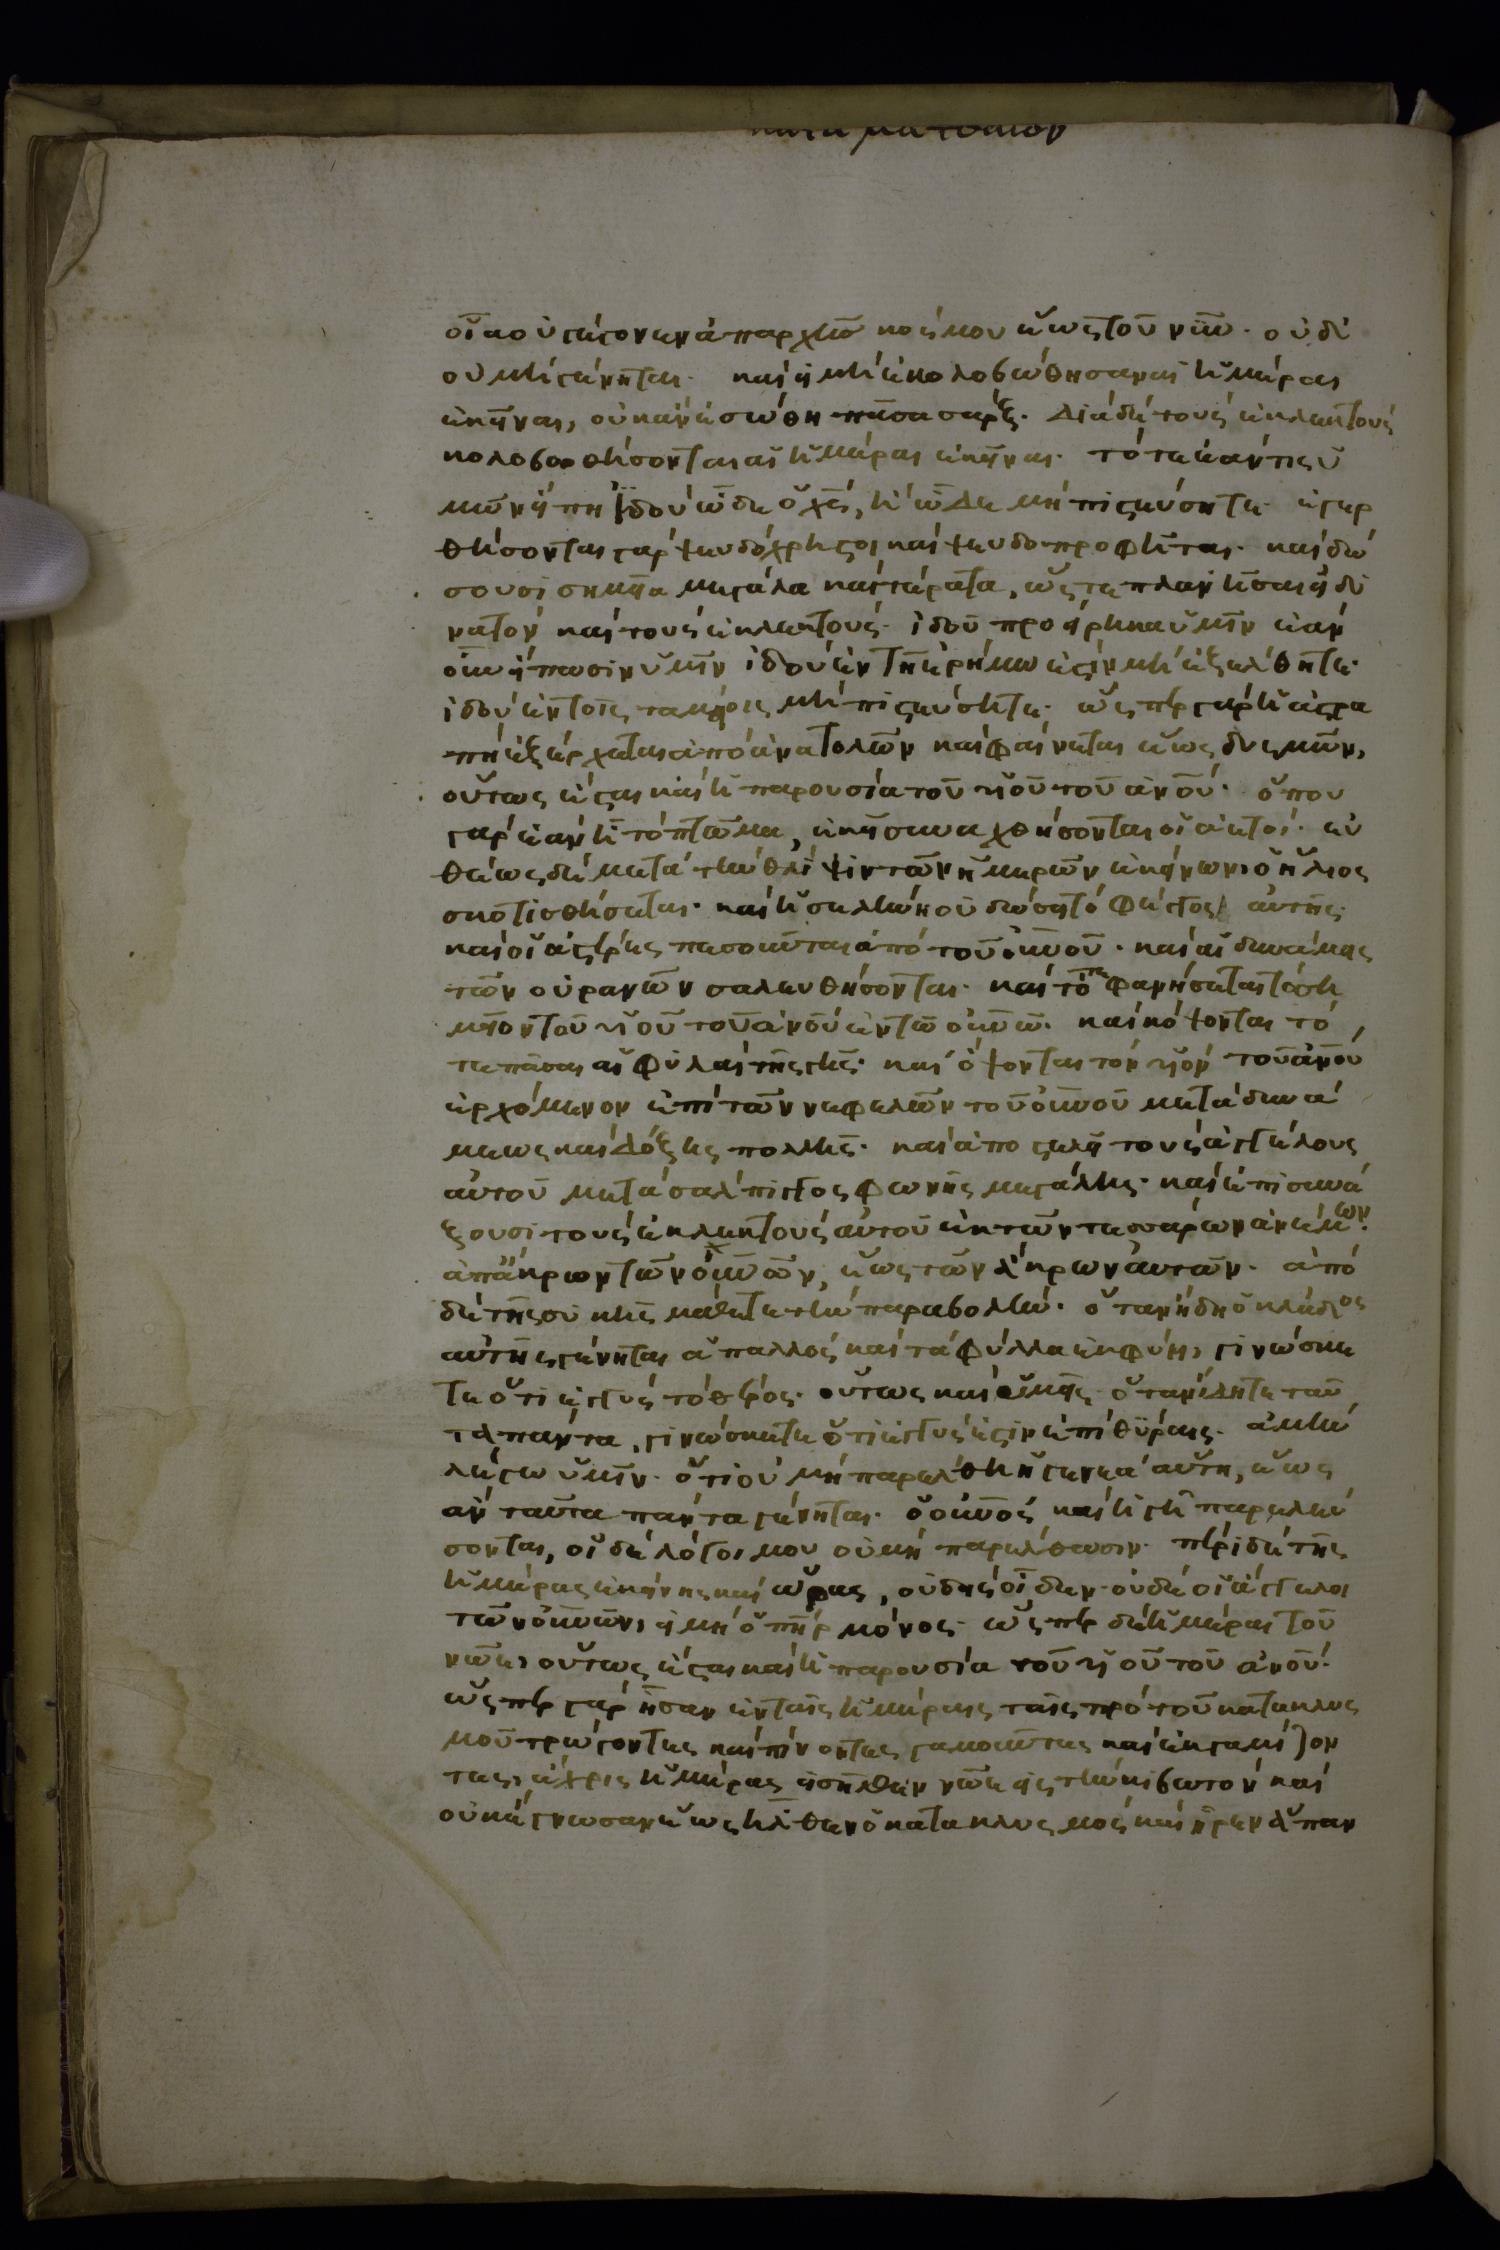 κατα ματθαιον
οἵα οὐ γέγονεν ἀπαρχῆσ κόσμου ἕως τοῦ νῦν· οὐδὲ
οὐ μὴ γένηται· καὶ εἰ μὴ ἐκολοβώθησαν αἱ ἡμέραι
ἐκεῖναι, οὐκ ἂν ἐσώθη πᾶσα σαρξ· διὰ δὲ τοὺς ἐκλεκτοὺς
κολοβωθήσονται αἱ ἡμέραι ἐκεῖναι· τότε ἐάν τις ὑ
μῖν εἴπῃ ἰδοὺ ὧδε ὁ χς, ἢ ὧδε μὴ πιστεύσητε· ἐγερ
θήσονται γὰρ ψευδόχρηστοι καὶ ψευδοπροφῆται· καὶ δώ
σουσι σημεῖα μεγάλα καὶ τέρατα, ὥστε πλανῆσαι εἰ δυ
νατὸν καὶ τοὺς ἐκλεκτούς· ἰδοὺ προείρηκα ὑμῖν ἐὰν
οὖν εἴπωσιν ὑμῖν ἰδοὺ ἐν τῇ ἐρήμω ἐστὶν μὴ ἐξέλθητε·
ἰδοὺ ἐν τοῖς ταμείοις μὴ πιστεύσητε· ὥσπερ γὰρ ἡ ἀστρα
πὴ ἐξέρχεται ἀπὸ ἀνατολῶν καὶ φαίνεται ἕως δυσμῶν,
οὕτως ἔσται καὶ ἡ παρουσία τοῦ υἱοῦ τοῦ ἀνοῦ· ὅπου
γὰρ ἐὰν ἦ τὸ πτῶμα, ἐκεῖ συναχθήσονται οἱ ἀετοί· εὐ
θέως δὲ μετὰ τὴν θλίψιν τῶν ἡμερῶν ἐκείνων, ὁ ἥλιος
σκοτισθήσεται· καὶ ἡ σελήνη οὐ δώσει τὸ φέγγος αὐτῆς·
καὶ οἱ ἀστέρες πεσοῦνται ἀπὸ τοῦ οὐνοῦ· καὶ αἱ δυνάμεις
τῶν οὐρανῶν σαλευθήσονται· καὶ τότε φανήσεται τὸ ση
μεῖον τοῦ υἱοῦ τοῦ ἀνοῦ ἐν τῶ οὐνῶ· καὶ κόψονται τό
τε πᾶσαι αἱ φυλαὶ τῆς γῆς· καὶ ὄψονται τὸν υἱὸν τοῦ ἀνοῦ
ἐρχόμενον ἐπὶ τῶν νεφελῶν τοῦ οὐνοῦ μετὰ δυνά
μεως καὶ δόξης πολλῆς· καὶ ἀποστελεῖ τοὺς ἀγγέλους
αὐτοῦ μετὰ σάλπιγγος φωνῆς μεγάλης· καὶ ἐπισυνά
ξουσι τοὺς ἐκλεκτοὺς αὐτοῦ ἐκ τῶν τεσσάρων ἀνέμων·
ἀπἄκρων τῶν οὐνῶν, ἕως τῶν ἄκρων αὐτῶν· ἀπὸ
δὲ τῆς συκῆς μάθετε τὴν παραβολήν· ὅταν ἤδη ὁ κλάδος
αὐτῆς γένηται ἁπαλλὸς καὶ τὰ φύλλα ἐκφύη, γινώσκε
τε ὅτι ἐγγὺς τὸ θέρος· οὕτως καὶ ὑμεῖς ὅταν ἴδητε ταῦ
τα παντα, γινώσκετε ὅτι ἐγγύς ἐστιν ἐπὶ θύραις· ἀμὴν
λέγω ὑμῖν· ὅτι οὐ μὴ παρέλθη ἡ γενεὰ αὕτη, ἕως
ἂν ταῦτα πάντα γένηται· ὁ οὐνὸς καὶ ἡ γῆ παρελεύ
σονται, οἱ δὲ λόγοι μου οὐ μὴ παρέλθωσιν· περὶ δὲ τῆς
ἡμέρας ἐκείνης καὶ ὥρας, οὐδεὶς οἶδεν· οὐδὲ οἱ ἄγγελοι
τῶν οὐνῶν, εἰ μὴ ὁ πῆρ μόνος· ὥσπερ δὲ ἡμέραι τοῦ
νῶε, οὕτως ἔσται καὶ ἡ παρουσία τοῦ υἱοῦ τοῦ ἀνοῦ·
ὥσπερ γὰρ ἦσαν ἐν ταῖς ἡμέραις ταῖς πρὸ τοῦ κατακλυσ
μοῦ τρώγοντες καὶ πίνοντες γαμοῦντες καὶ ἐκγαμίζον
τες, ἄχρις ἡμέρας εἰσῆλθεν νῶε εἰς τὴν κιβωτὸν καὶ
οὐκ ἔγνωσαν ἕως ἦλθεν ὁ κατακλυσμὸς καὶ ἦρεν ἅπαν